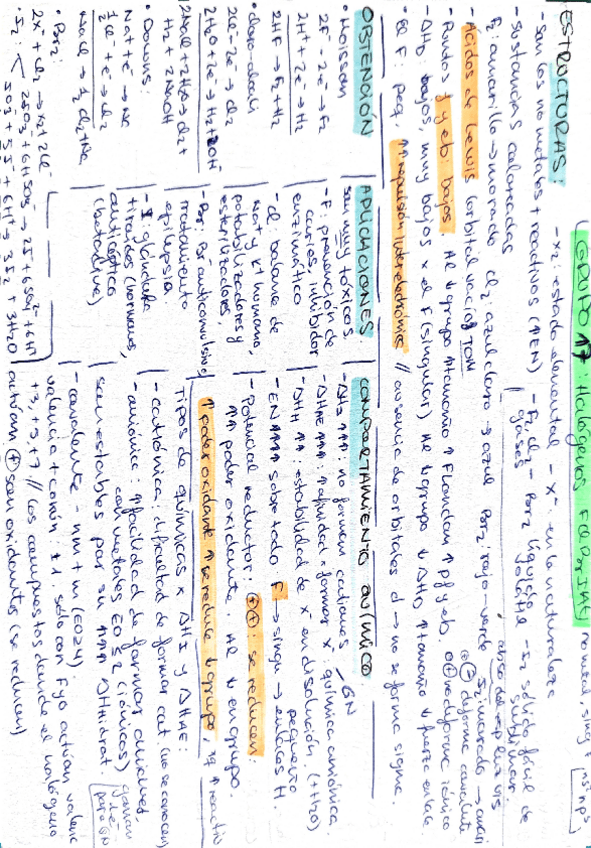 GRUPO 17: Halógenos F Cl Br I At
no metal, sing F ns² np⁵
ESTRUCTURAS:
- x₂: estado elemental - x⁻: en la naturaleza
- Son los no metales + reactivos (↑EN) - F₂, Cl₂ - Br₂ líquido - I₂ sólido fácil de
gases volátil sublimar
- sustancias coloreadas
F₂: amarillo → morado Cl₂: azul claro → azul Br₂: rojo - verde I₂: morado →
- Ácidos de Lewis (orbital vacío) TOM
- Puntos f y eb: bajos. Al ↓ grupo ↑tamaño ↑F london ↑pf y eb.
- ΔH_D: bajos, muy bajos x el F (singular) Al ↓ grupo ↓ ΔH_D ↑tamaño ↓ fuerza enlace
- El F: peq ↑↑ repulsión interelectrónica // ausencia de orbitales d → no se forma sigma.
OBTENCIÓN
• Moissan
2F⁻ - 2e⁻ → F₂
2H⁺ + 2e⁻ → H₂
2HF → F₂ + H₂
• cloro-alcali
2Cl⁻ - 2e⁻ → Cl₂
2H₂O + 2e⁻ → H₂ + 2OH⁻
2NaCl + 2H₂O → Cl₂ +
H₂ + 2NaOH
• Downs:
Na⁺ + e⁻ → Na
NaCl → ½ Cl₂ + Na
• Br₂:
2x⁻ + Cl₂ → x₂ + 2Cl⁻
• I₂:
2IO₃⁻ + 6HSO₃⁻ → 2I⁻ + 6SO₄²⁻ + 6H⁺
IO₃⁻ + 5I⁻ + 6H⁺ → 3I₂ + 3H₂O
APLICACIONES
son muy tóxicos.
- F: prevención de
caries, inhibidor
enzimático
- Cl: balance de
Na⁺ y K⁺ humano,
potabilizadores y
esterilizadores,
- Br: Br anticonvulsivo y
tratamiento
epilepsia
- I: glándula
tiroides (hormonas,
antiséptico
(betadine)
COMPORTAMIENTO QUÍMICO
- ΔH_I ↑↑↑: no forman cationes
- ΔH_AE ↑↑↑: ↑afinidad x formar x⁻: química aniónica.
- ΔH_H ↑↑: estabilidad de x⁻ en disolución. (+H₂O)
- EN ↑↑↑↑ sobre todo F → singu → enlaces H.
pequeño
- Potencial reductor: ⊕⊕: se reducen:
↑↑ poder oxidante. Al ↓ en grupo.
↑ poder oxidante ↑ se reduce ↓ grupo,
Tipos de químicas x ΔH_I y ΔH_AE:
- catiónica: dificultad de formar cat (no se conocen)
- aniónica: ↑facilidad de formar aniones,
con metales EO ≤ 2 (iónicos)
son estables por su ↑↑↑ ΔHhidrat.
- covalente - nm + m (EO≥4):
valencia + común ±1. solo con F y O actúan valencia
+3, +5 +7 // los compuestos donde el halógeno
actúan ⊕ son oxidantes (se reducen)